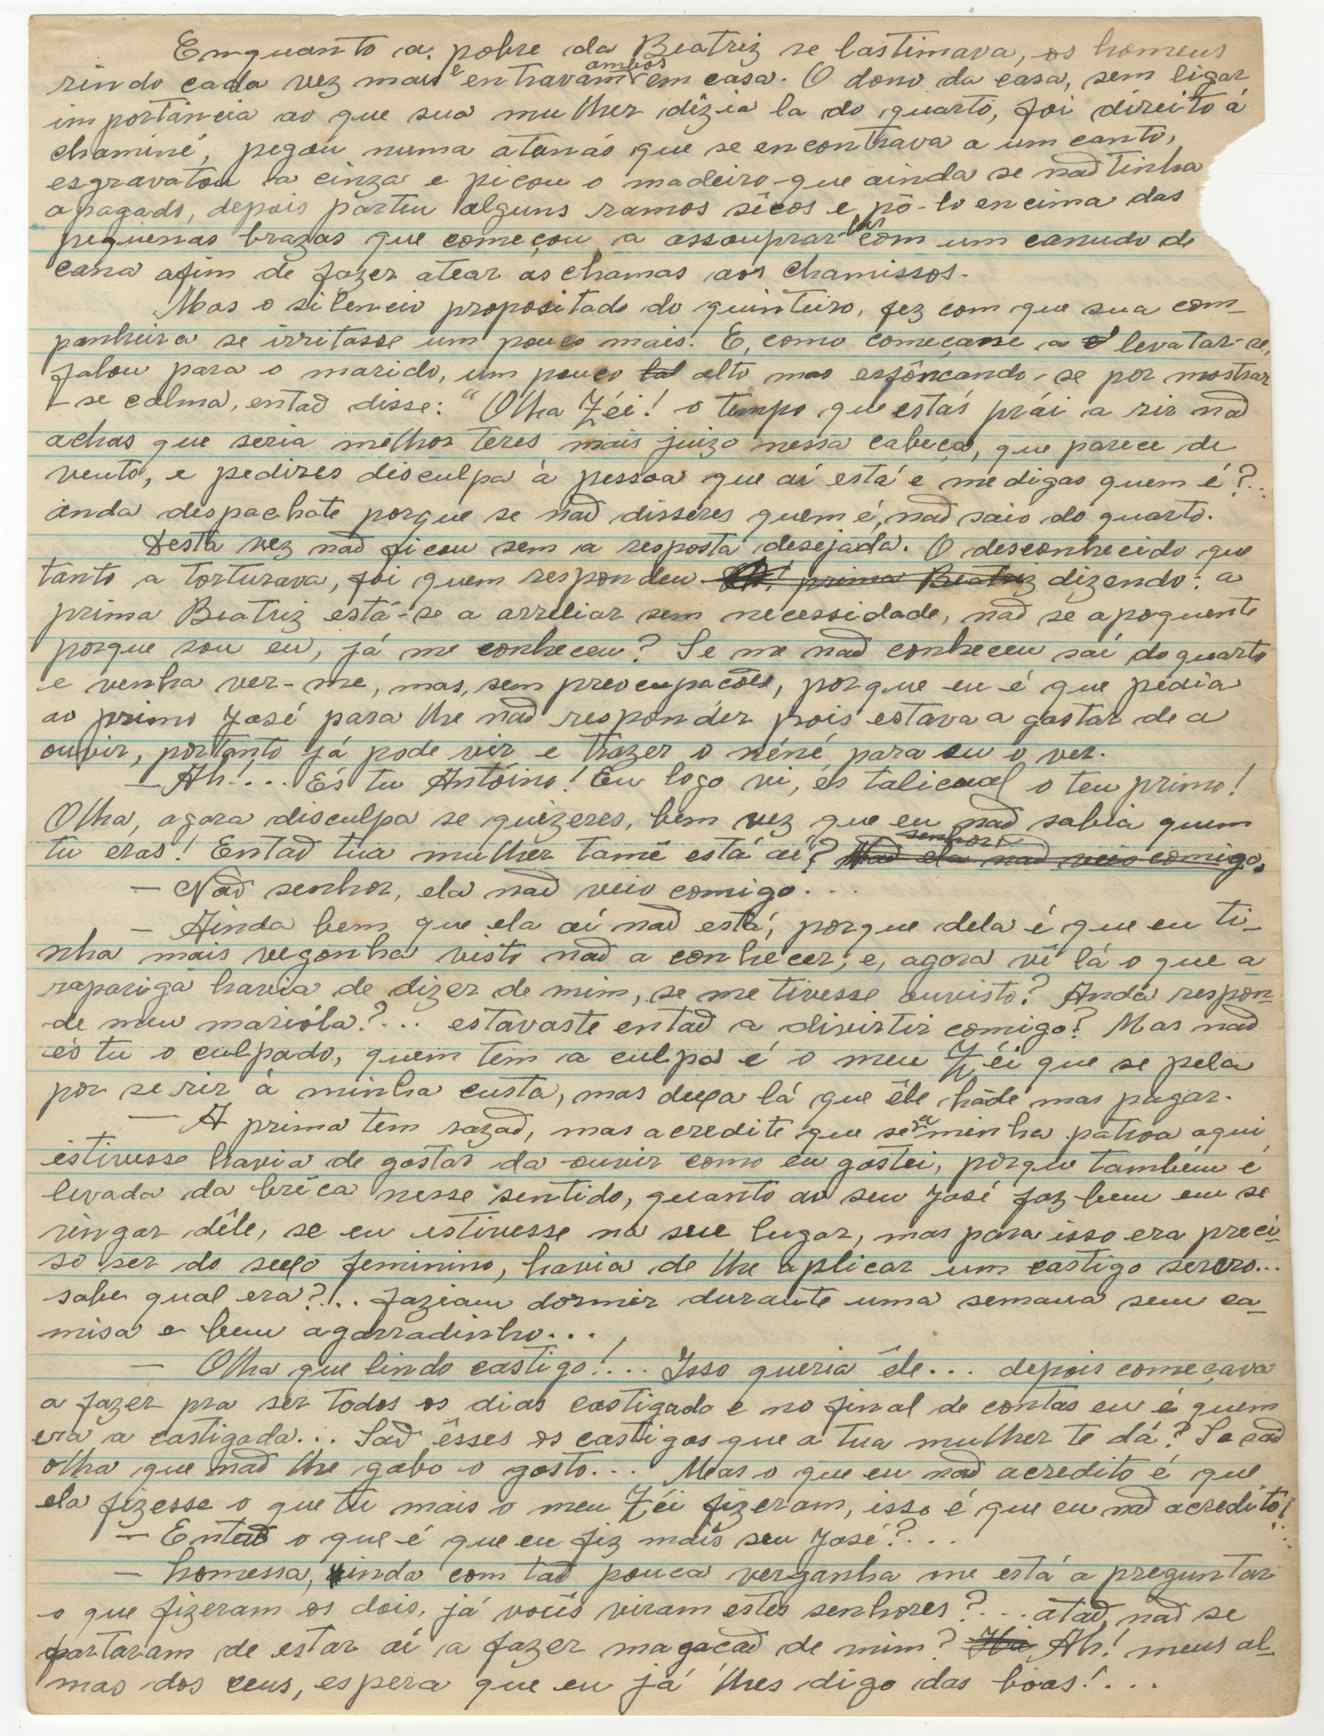 Emquanto a pobre da Beatriz se lastimava, os homens
rindo cada vez mais e entravam ambos em casa. O dono da casa, sem ligar
importancia ao que sua mulher dizia la do quarto, foi direito á
chaminé, pegou numa atanás que se encontrava a um canto,
esgravatou a cinza e picou o madeiro que ainda se nað tinha
apagado, depois partiu alguns ramos sêcos e pô-lo encima das
pequenas brazas que começou a assouprar-las com um canudo de
cana afim de fazer atear as chamas aos chamissos.
Mas o silencio propositado do quinteiro, fez com que sua com-
panheira se irritasse um pouco mais. E, como começane a levatar-se,
falou para o marido, um pouco alto mas esfôrcando-se por mostrar
-se calma, entað disse: "Olha Zéi! o tempo que estás prái a rir nað
achas que seria melhor teres mais juizo nessa cabeça, que parece de
vento, e pedires disculpa à pessoa que aí está e me digas quem é?..
ánda despachate porque se nað disséres quem é, nað saio do quarto.
Desta vez nað ficou sem a resposta desejada. O desconhecido que
tanto a torturava, foi quem respondeu Oh! prima Beatriz dizendo: a
prima Beatriz está-se a arreliar sem necessidade, nað se apoquente
porque sou eu, já me conheceu? Se me nað conheceu saí do quarto
e venha ver-me, mas, sem preocupacões, porque eu é que pedia
ao primo José para lhe nað respondêr pois estava a gostar de a
ouvir, portanto já pode vir e trazer o néné para eu o ver.
-Ah!... És tu Antóino! Eu logo vi, és talicual o teu primo!
Olha, agora disculpa se quizeres, bem vez que eu nað sabia quem
tu eras! Entað tua mulher tamê está aí? Nað senhora ela nað veio comigo.
- Nað senhor, ela nað veio comigo...
- Ainda bem que ela aí nað está, porque dela é que eu ti-
nha mais vegonha visto nað a conhecer, e, agora vê lá o que a
rapariga havia de dizer de mim, se me tivesse ouvisto? Anda respon-
de meu marióla?... estavaste entað a divirtir comigo? Mas nað
és tu o culpado, quem tem a culpa é o meu Zéi que se pela
por se rir à minha custa, mas dexa lá que êle háde mas pagar.
- A prima tem razað, mas acredite que se a menha patroa aqui
estivesse havia de gostar da ouvir como eu gostei, porque também é
levada da bréca nesse sentido, quanto ao seu José faz bem em se
vingar dêle, se eu estivesse no seu lugar, mas para isso era preci-
so ser do sexo feminino, havia de lhe aplicar um castigo severo...
sabe qual era?... faziam dormir durante uma semana sem ca-
misa e bem agarradinho...
- Olha que lindo castigo!... Isso queria êle... depois começava
a fazer pra ser todos os dias castigado e no final de contas eu é quem
era a castigada... Sað êsses os castigos que a tua mulher te dá? Se sað
olha que nað lhe gabo o gosto... Mas o que eu nað acredito é que
ela fizesse o que tu mais o meu Zéi fizeram, isso é que eu nað acredito!...
- Entað o que é que eu fiz mais seu José?...
- homessa, inda com tað pouca verganha me está a preguntar
o que fizeram os dois, já voiis viram estes senhores?... atað, nað se
fartaram de estar aí a fazer magacað de mim? Ah! meus al-
mas dos ceus, espera que eu já lhes digo das boas!...